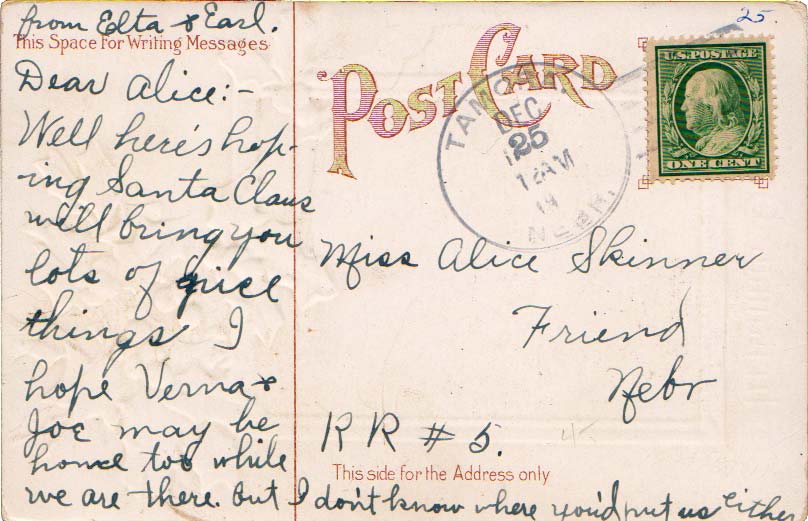 from Elta & Earl.
This Space For Writing Messages
Dear Alice:-
Well here's hop-
ing Santa Claus
will bring you
lots of nice
things I
hope Verna &
Joe may be
home too while
we are there. but I don't know where you'd put us either
POST CARD
25.
DEC
25
12AM
NEBR.
U.S. POSTAGE
ONE CENT
Miss Alice Skinner
Friend
Nebr
R R # 5.
This side for the Address only